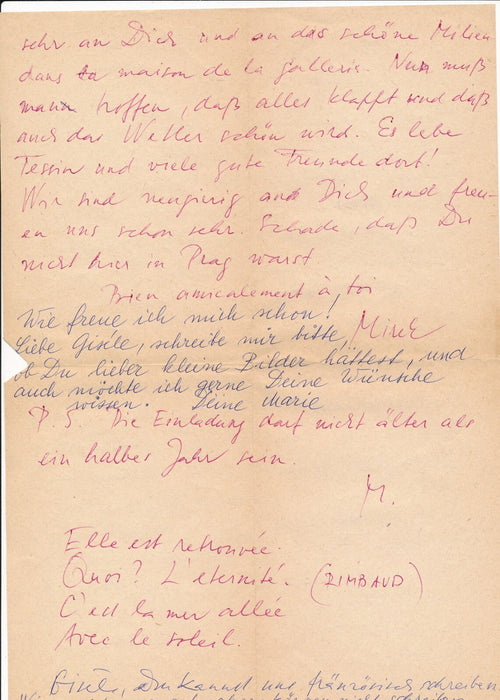 sehr an Dich und an das schöne Milieu
dans ta maison de la gallerie. Nun muß
mann hoffen, daß alles klappt und daß
auch das Wetter schön wird. Es lebe
Tessin und viele gute Freunde dort!
Wir sind neugierig auf Dich und freu-
en uns schon sehr. Schade, daß Du
nicht hier in Prag warst.
Bien amicalement à toi
Wie freue ich mich schon!
Mirek
Liebe Gisèle, schreibe mir bitte,
ob Du lieber kleine Bilder hättest, und
auch möchte ich gerne Deine Wünsche
wissen. Deine Marie
P.S. Die Einladung darf nicht älter als
ein halbes Jahr sein.
M.
Elle est retrouvée.
Quoi? L'eternité. (RIMBAUD)
C'est la mer allée
Avec le soleil.
Gisèle, Du kannst uns französisch schreiben